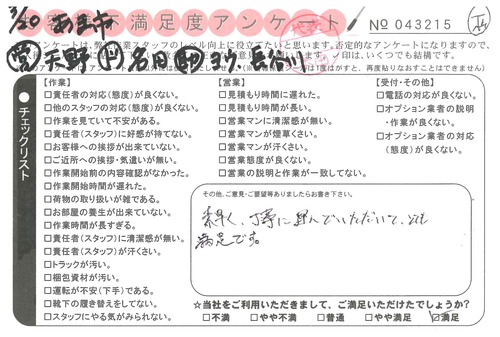 3/20 あま市
お客様不満足度アンケート
No 043215
アンケートは、弊社従業スタッフのレベル向上に役立てたいと思います。否定的なアンケートになりますので、
営 天野 ド 名月 助手 ヨウ、長谷川
チェックリスト
【作業】
□責任者の対応(態度)が良くない。
□他のスタッフの対応(態度)が良くない。
□作業を見ていて不安がある。
□責任者(スタッフ)に好感が持てない。
□お客様への挨拶が出来ていない。
□ご近所への挨拶・気遣いが無い。
□作業開始前の内容確認がなかった。
□作業開始時間が遅れた。
□荷物の取り扱いが雑である。
□お部屋の養生が出来ていない。
□作業時間が長すぎる。
□責任者(スタッフ)に清潔感が無い。
□責任者(スタッフ)が汗くさい。
□トラックが汚い。
□梱包資材が汚い。
□運転が不安(下手)である。
□靴下の履き替えをしてない。
□スタッフにやる気がみられない。
【営業】
□見積もり時間に遅れた。
□見積もり時間が長い。
□営業マンに清潔感が無い。
□営業マンが煙草くさい。
□営業マンが汗くさい。
□営業態度が良くない。
□営業の説明と作業が一致してない。
【受付・その他】
□電話の対応が良くない。
□オプション業者の説明
・作業が良くない。
□オプション業者の対応
(態度)が良くない。
その他、ご意見・ご要望等ありましたらお書き下さい。
素早く、丁寧に運んでいただいて、とても
満足です。
☆当社をご利用いただきまして、ご満足いただけたでしょうか？
□不満 □やや不満 □普通 □やや満足 ☑満足